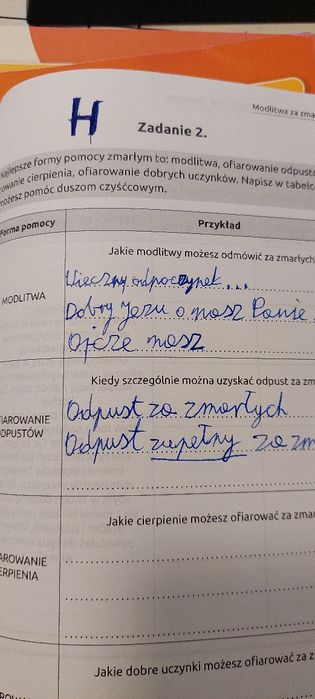 Modlitwa za zma
H
Zadanie 2.
Najlepsze formy pomocy zmarłym to: modlitwa, ofiarowanie odpust
rowanie cierpienia, ofiarowanie dobrych uczynków. Napisz w tabelc
ożesz pomóc duszom czyśćcowym.
Forma pomocy
Przykład
Jakie modlitwy możesz odmówić za zmarłych
MODLITWA
Wieczny odpoczynek...
Dobry Jezu o nasz Panie
Ojcze nasz
Kiedy szczególnie można uzyskać odpust za zm
IAROWANIE
DPUSTÓW
Odpust za zmarłych
Odpust zupełny za zm
Jakie cierpienie możesz ofiarować za zmar
AROWANIE
ERPIENIA
Jakie dobre uczynki możesz ofiarować za z